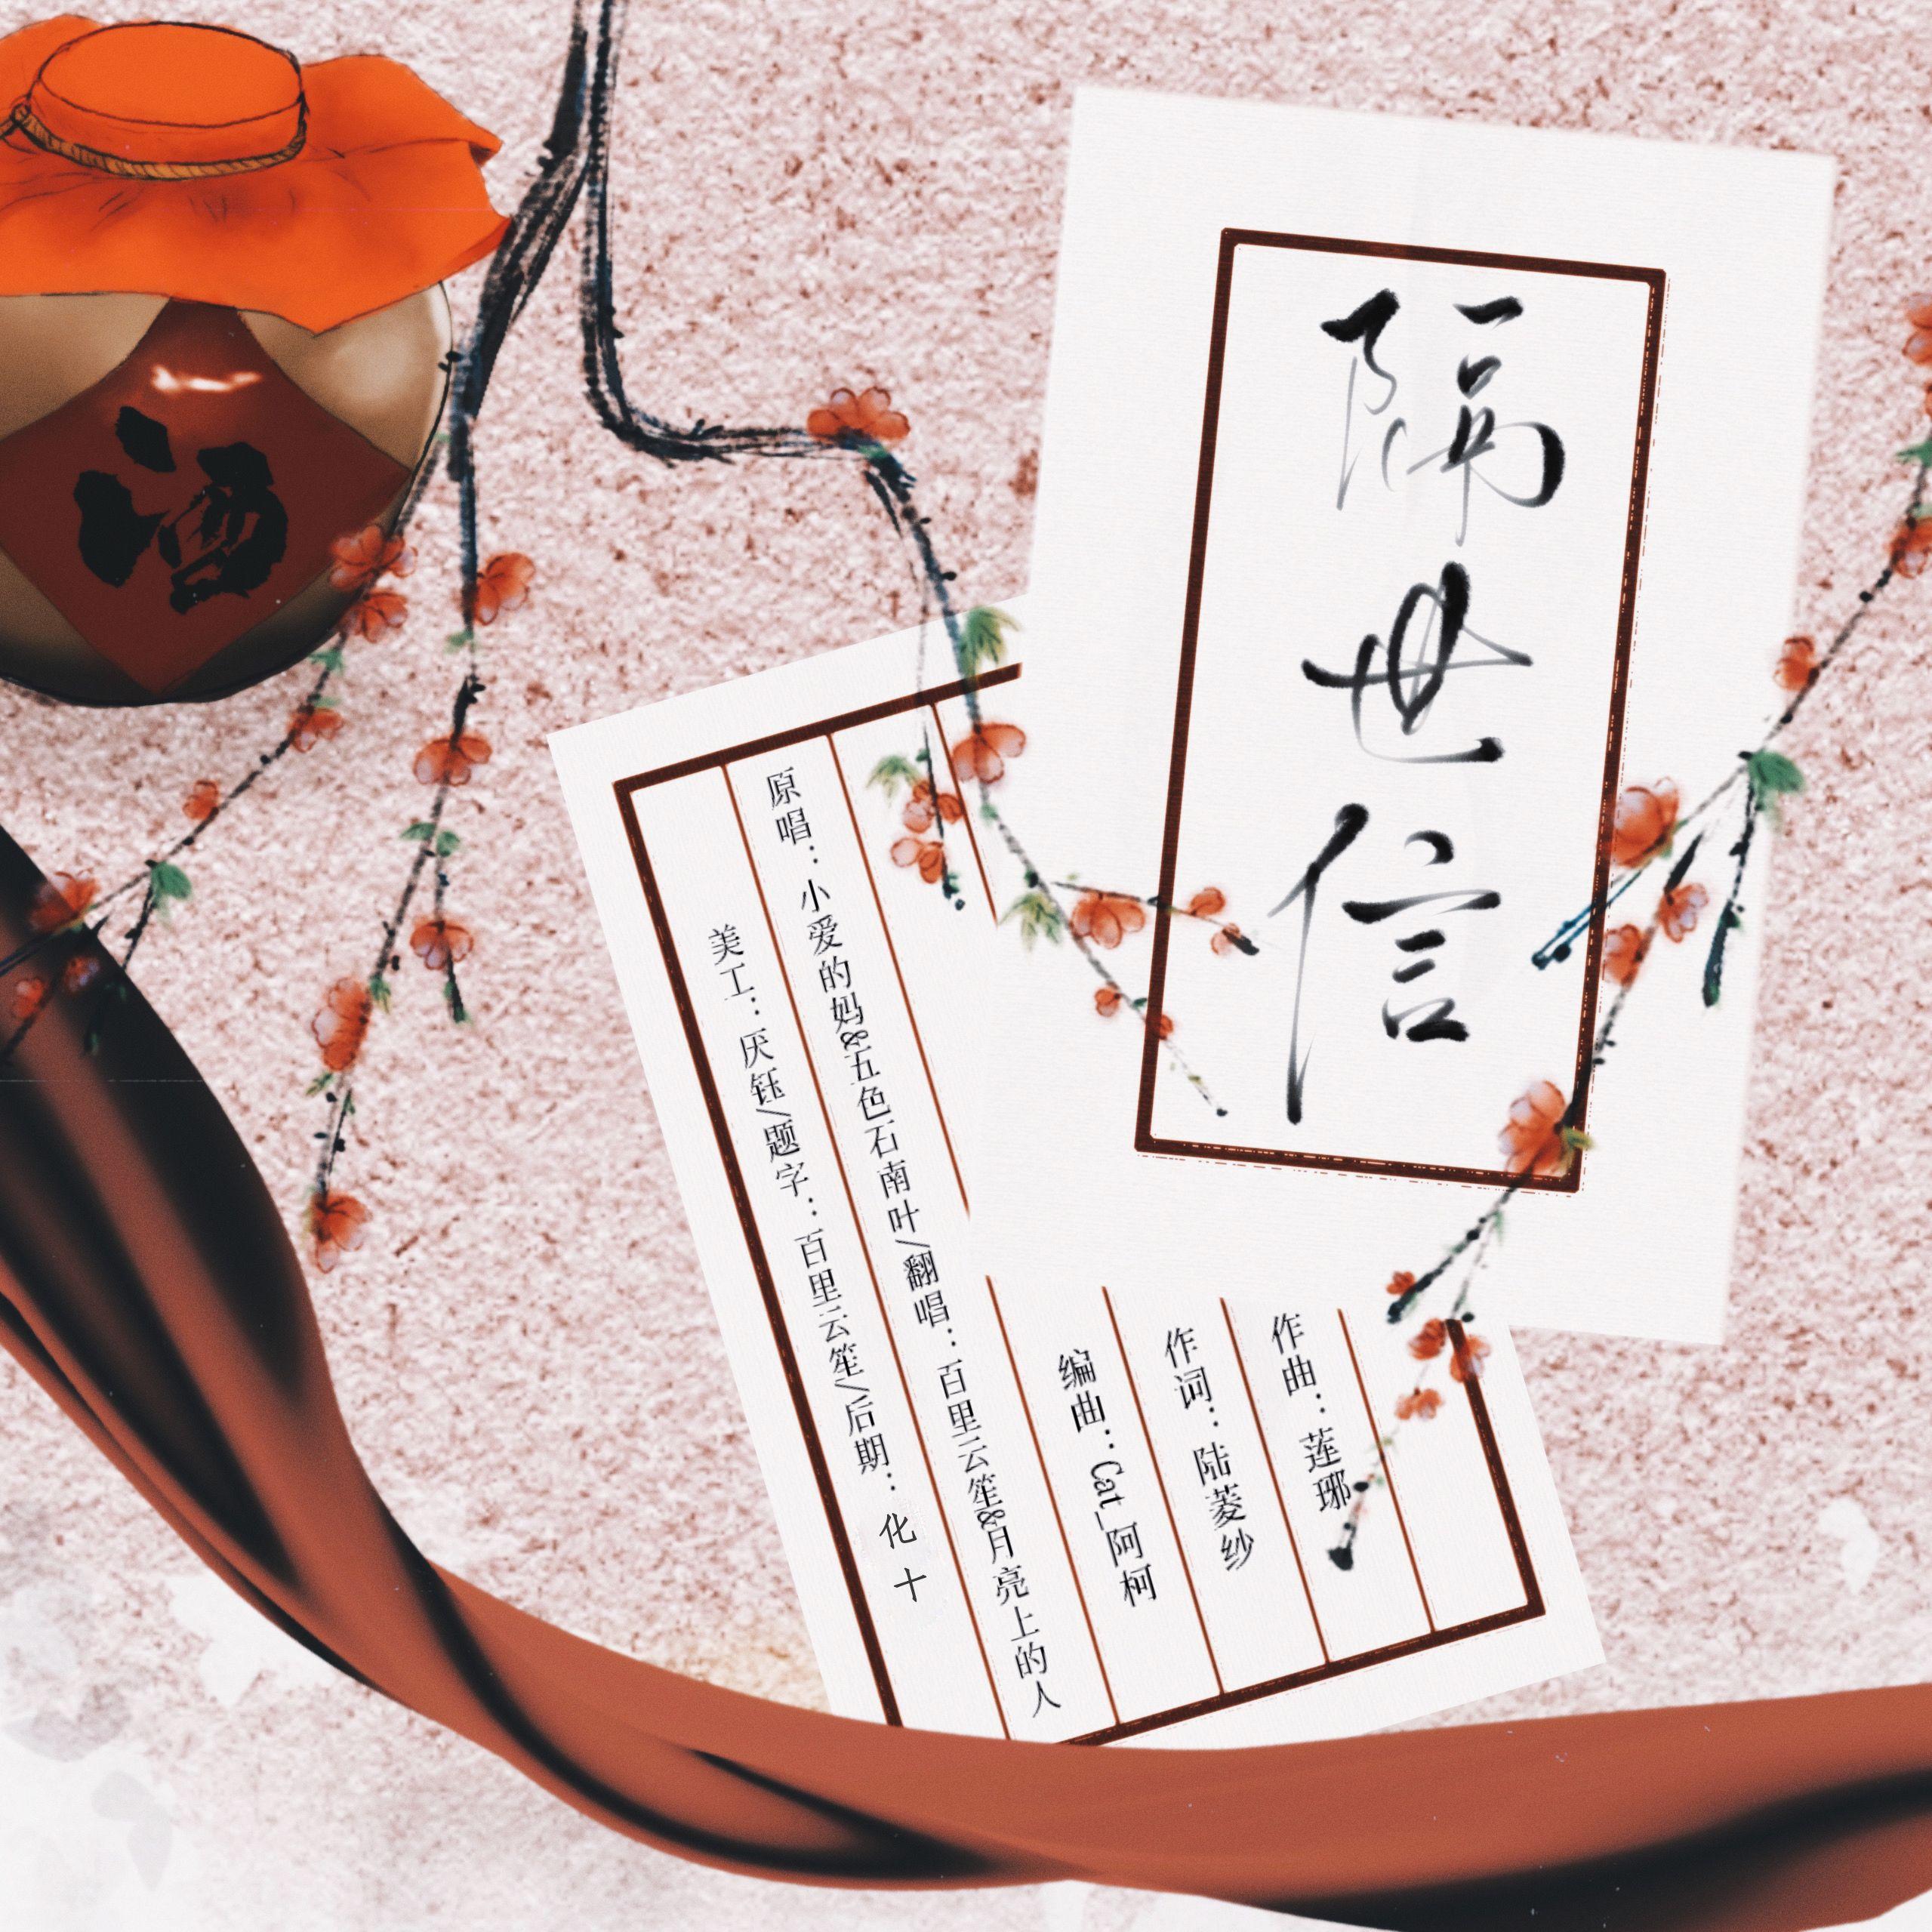 隔世信
作曲：莲琊
作词：陆菱纱
编曲：Cat_阿柯
原唱：小爱的妈&五色石南叶/翻唱：百里云笙&月亮上的人
美工：厌钰/题字：百里云笙/后期：化十
酒